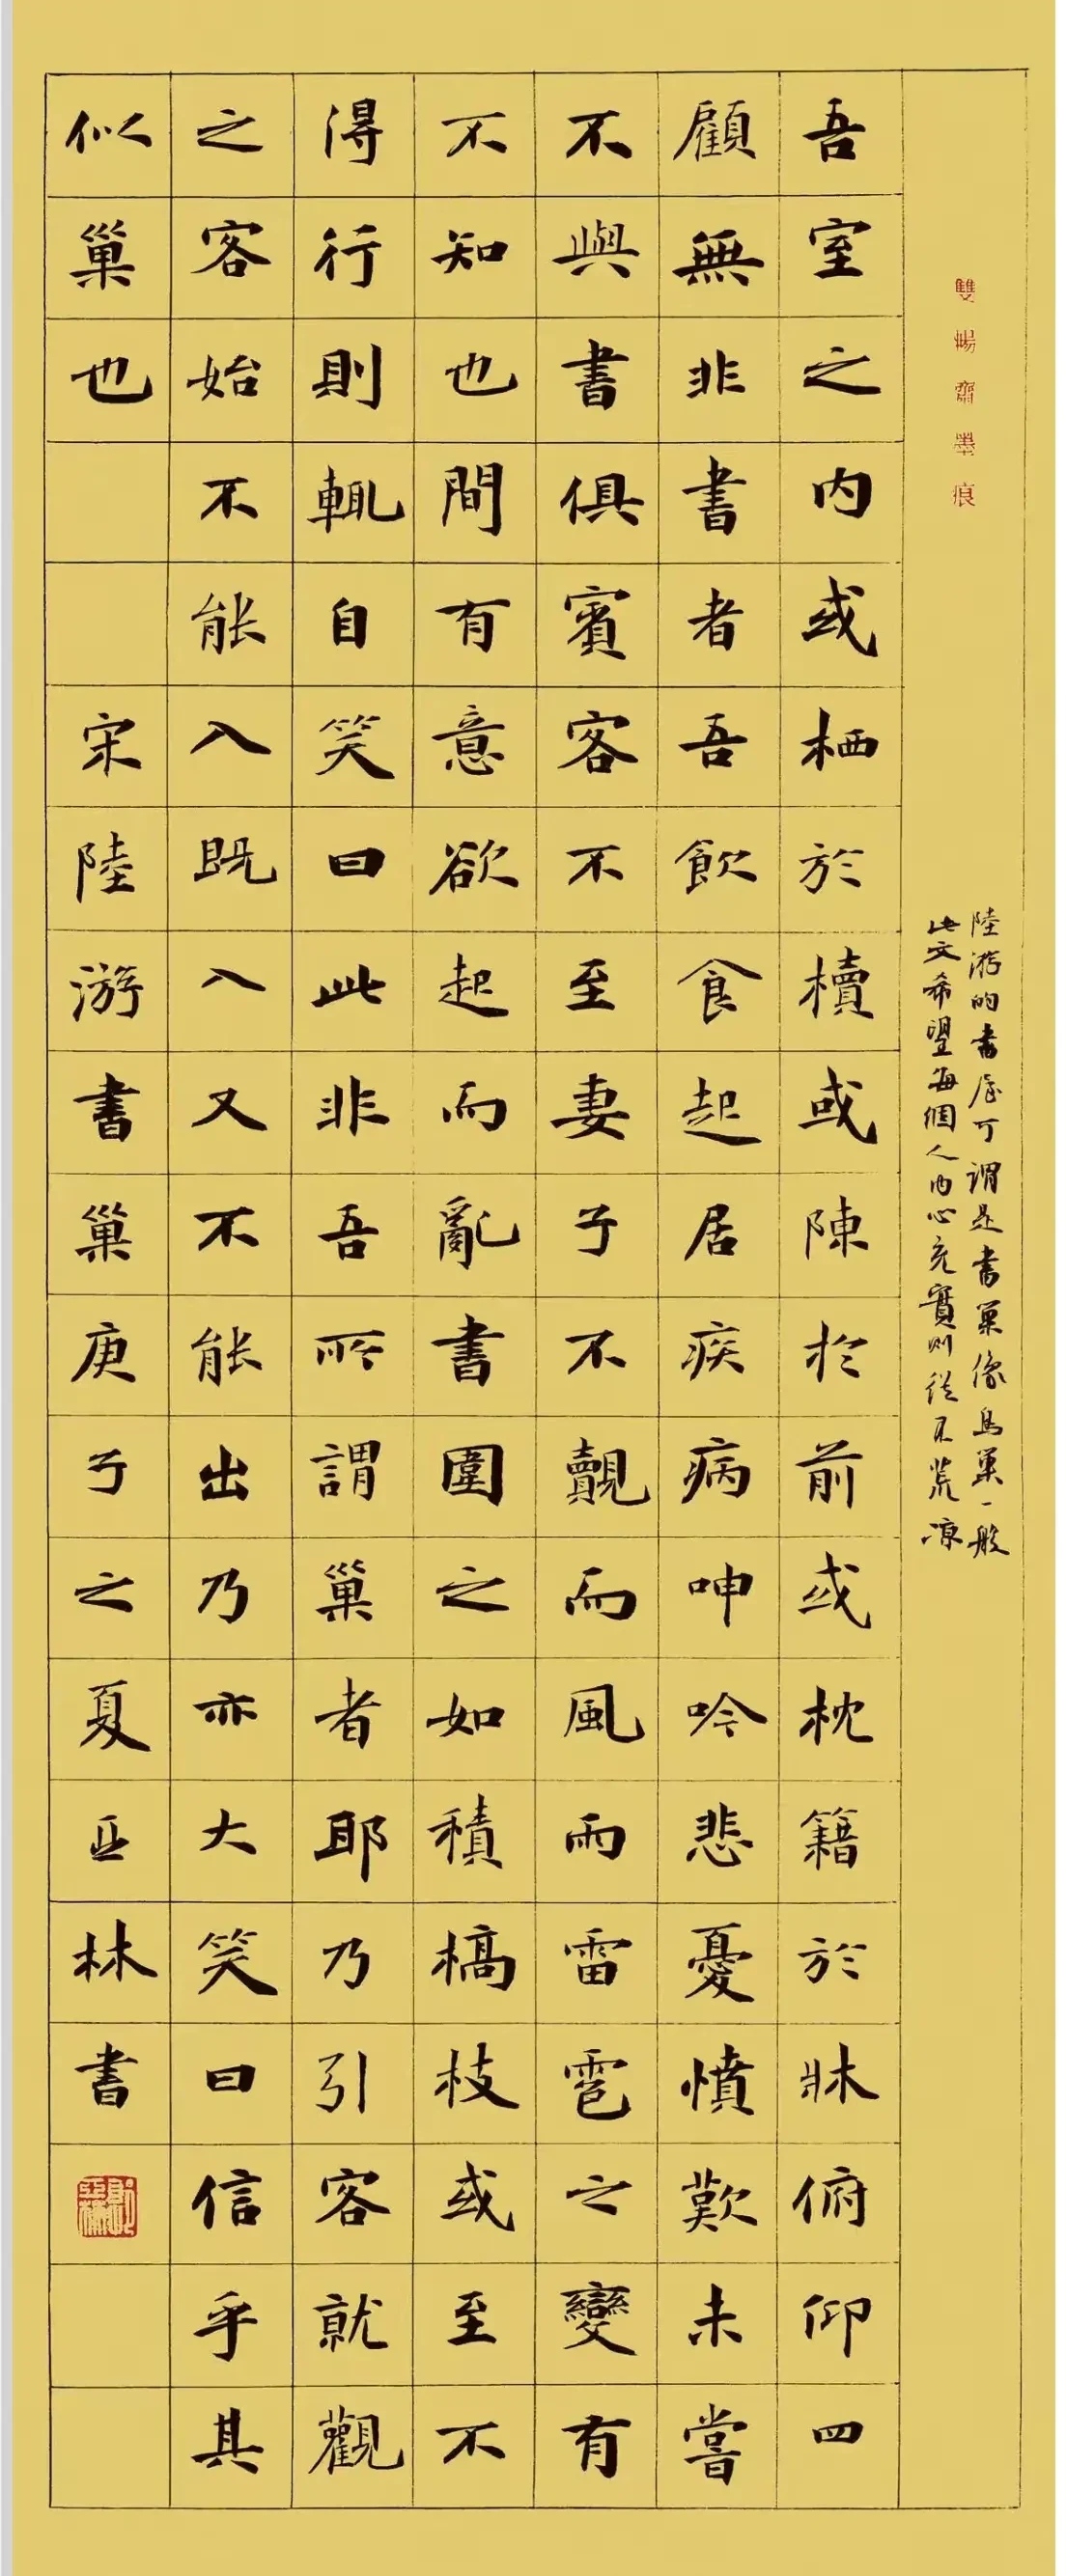 雙齋墨痕
陸游的書屋可謂是書巢像鳥巢一般
此文希望每個人内心充實則從不荒凉
吾室之内或栖於櫝或陳於前或枕籍於牀俯仰四
顧無非書者吾飲食起居疾病呻吟悲憂憤歎未嘗
不與書俱賓客不至妻子不覿而風雨雷雹之變有
不知也間有意欲起而亂書圍之如積槁枝或至不
得行則輒自笑曰此非吾所謂巢者耶乃引客就觀
之客始不能入既入又不能出乃亦大笑曰信乎其
似巢也 宋陸游書巢庚子之夏亞林書